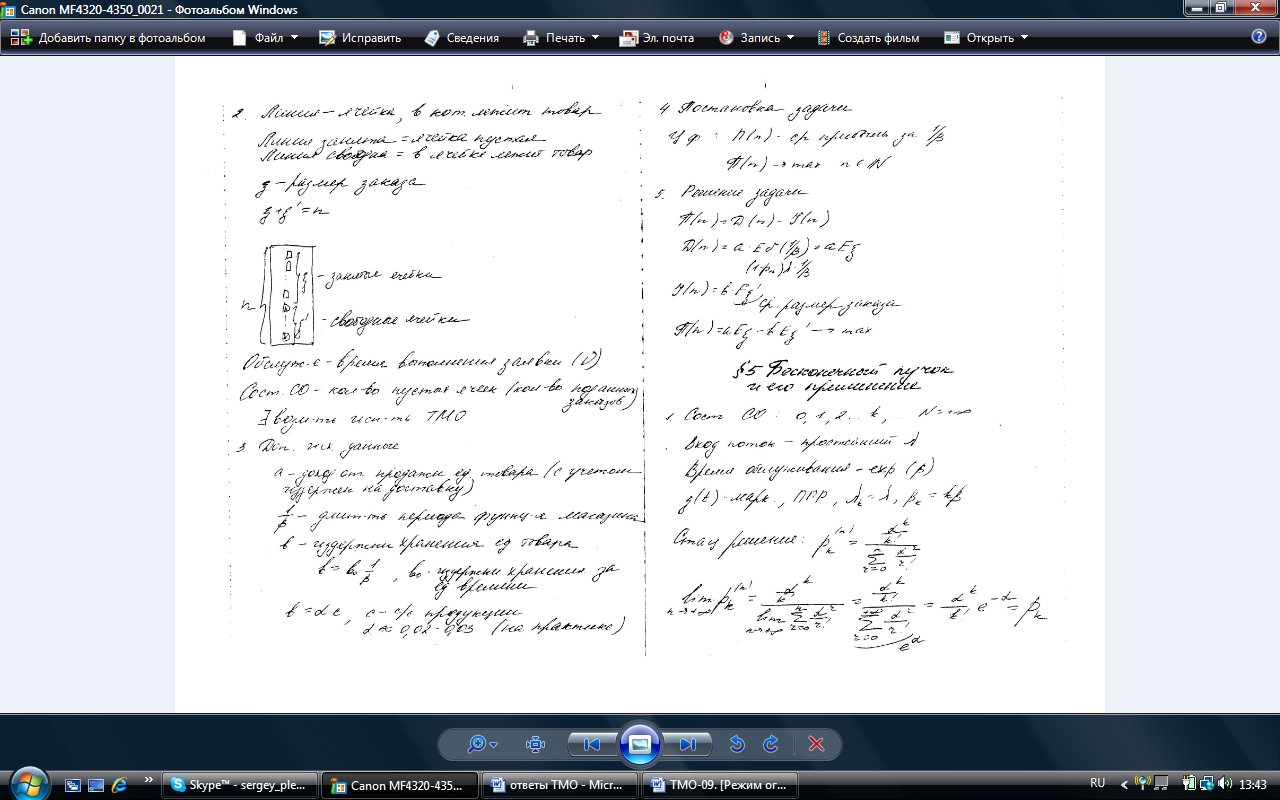 Canon MF4320-4350_0021 - Фотоальбом Windows
Добавить папку в фотоальбом Файл Исправить Сведения Печать Эл. почта Запись Создать фильм Открыть
2. Линия – ячейка, в кот. лежит товар
Линия занята = ячейка пустая
Линия свободна = в ячейке лежит товар
ξ – размер заказа
ξ + ξ' = n
n
– занятые ячейки
– свободные ячейки
Обслуж-е – время выполнения заявки (V)
Сост. СО – кол-во пустых ячеек (кол-во поданных
заказов)
∃ возм-ть исп-ть ТМО
3 Доп. исх. данные
a – доход от продажи ед. товара (с учетом
издержек на доставку)
1/β – длит-ть периода функц-я магазина
b – издержки хранения ед товара
b = b₀ 1/β , b₀ - издержки хранения за
ед времени
b = α c, c – с/с продукции
α ≈ 0,02 - 0,03 (на практике)
4 Постановка задачи
Ц.ф. : П(n) - ср прибыль за 1/β
П(n) → max n ∈ N
5. Решение задачи
П(n) = D(n) - I(n)
D(n) = a · Eσ(1/β) = a Eξ
(1-pₙ) λ · 1/β
I(n) = b · Eξ'
ср. размер заказа
П(n) = a Eξ - b Eξ' → max
§5 Бесконечный пучок
и его применение
1. Сост СО : 0, 1, 2 ... k, ... N = +∞
Вход поток – простейший λ
Время обслуживания – exp (β)
ξ(t) - марк., ПГР, λₖ = λ, βₖ = kβ
Стац решение: pₖ⁽ⁿ⁾ = (αᵏ/k!) / (∑ₙ r=0 αʳ/r!)
lim n→+∞ pₖ⁽ⁿ⁾ = (αᵏ/k!) / (lim n→+∞ ∑ⁿ r=0 αʳ/r!) = (αᵏ/k!) / (∑+∞ r=0 αʳ/r!) = αᵏ/k! e^-α = pₖ
e^α
Skype™ - sergey_ple... Canon MF4320-435... ответы ТМО - Micr... ТМО-09. [Режим ог... RU 13:43